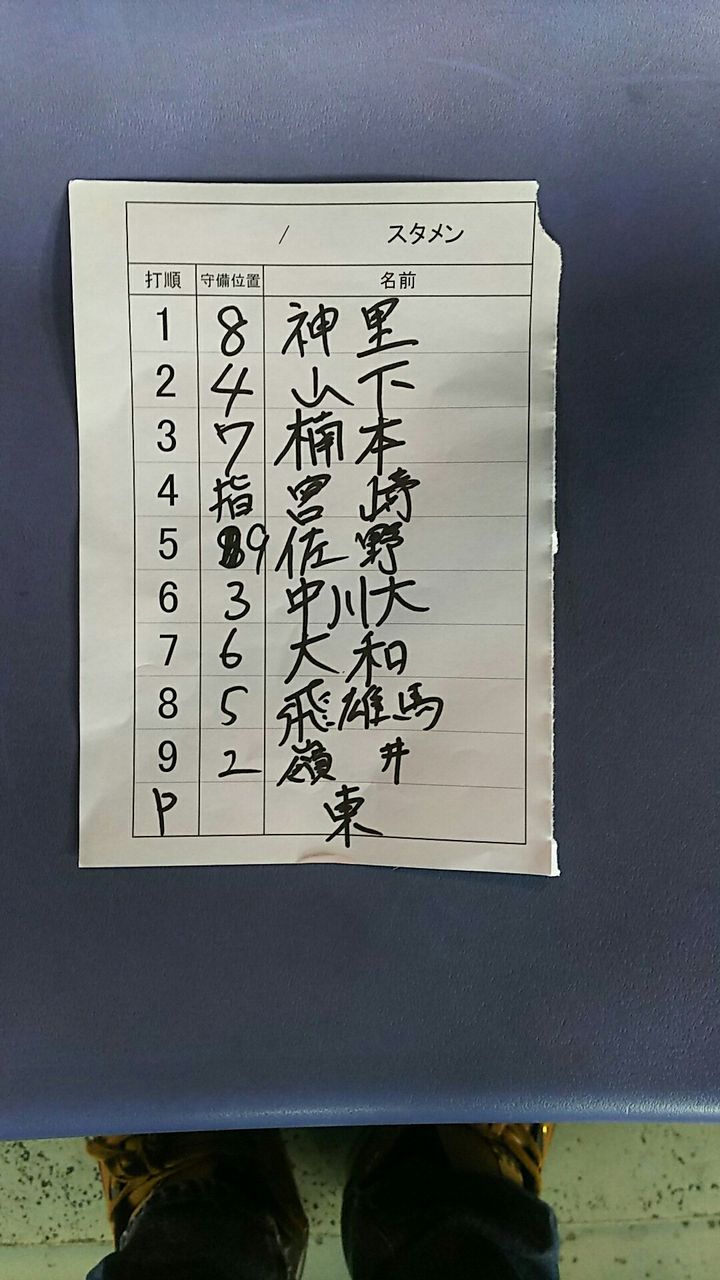 / スタメン
打順 守備位置 名前
1 8 神里
2 4 山下
3 7 楠本
4 指 宮崎
5 9 佐野
6 3 中川大
7 6 大和
8 5 飛雄馬
9 2 嶺井
P 東